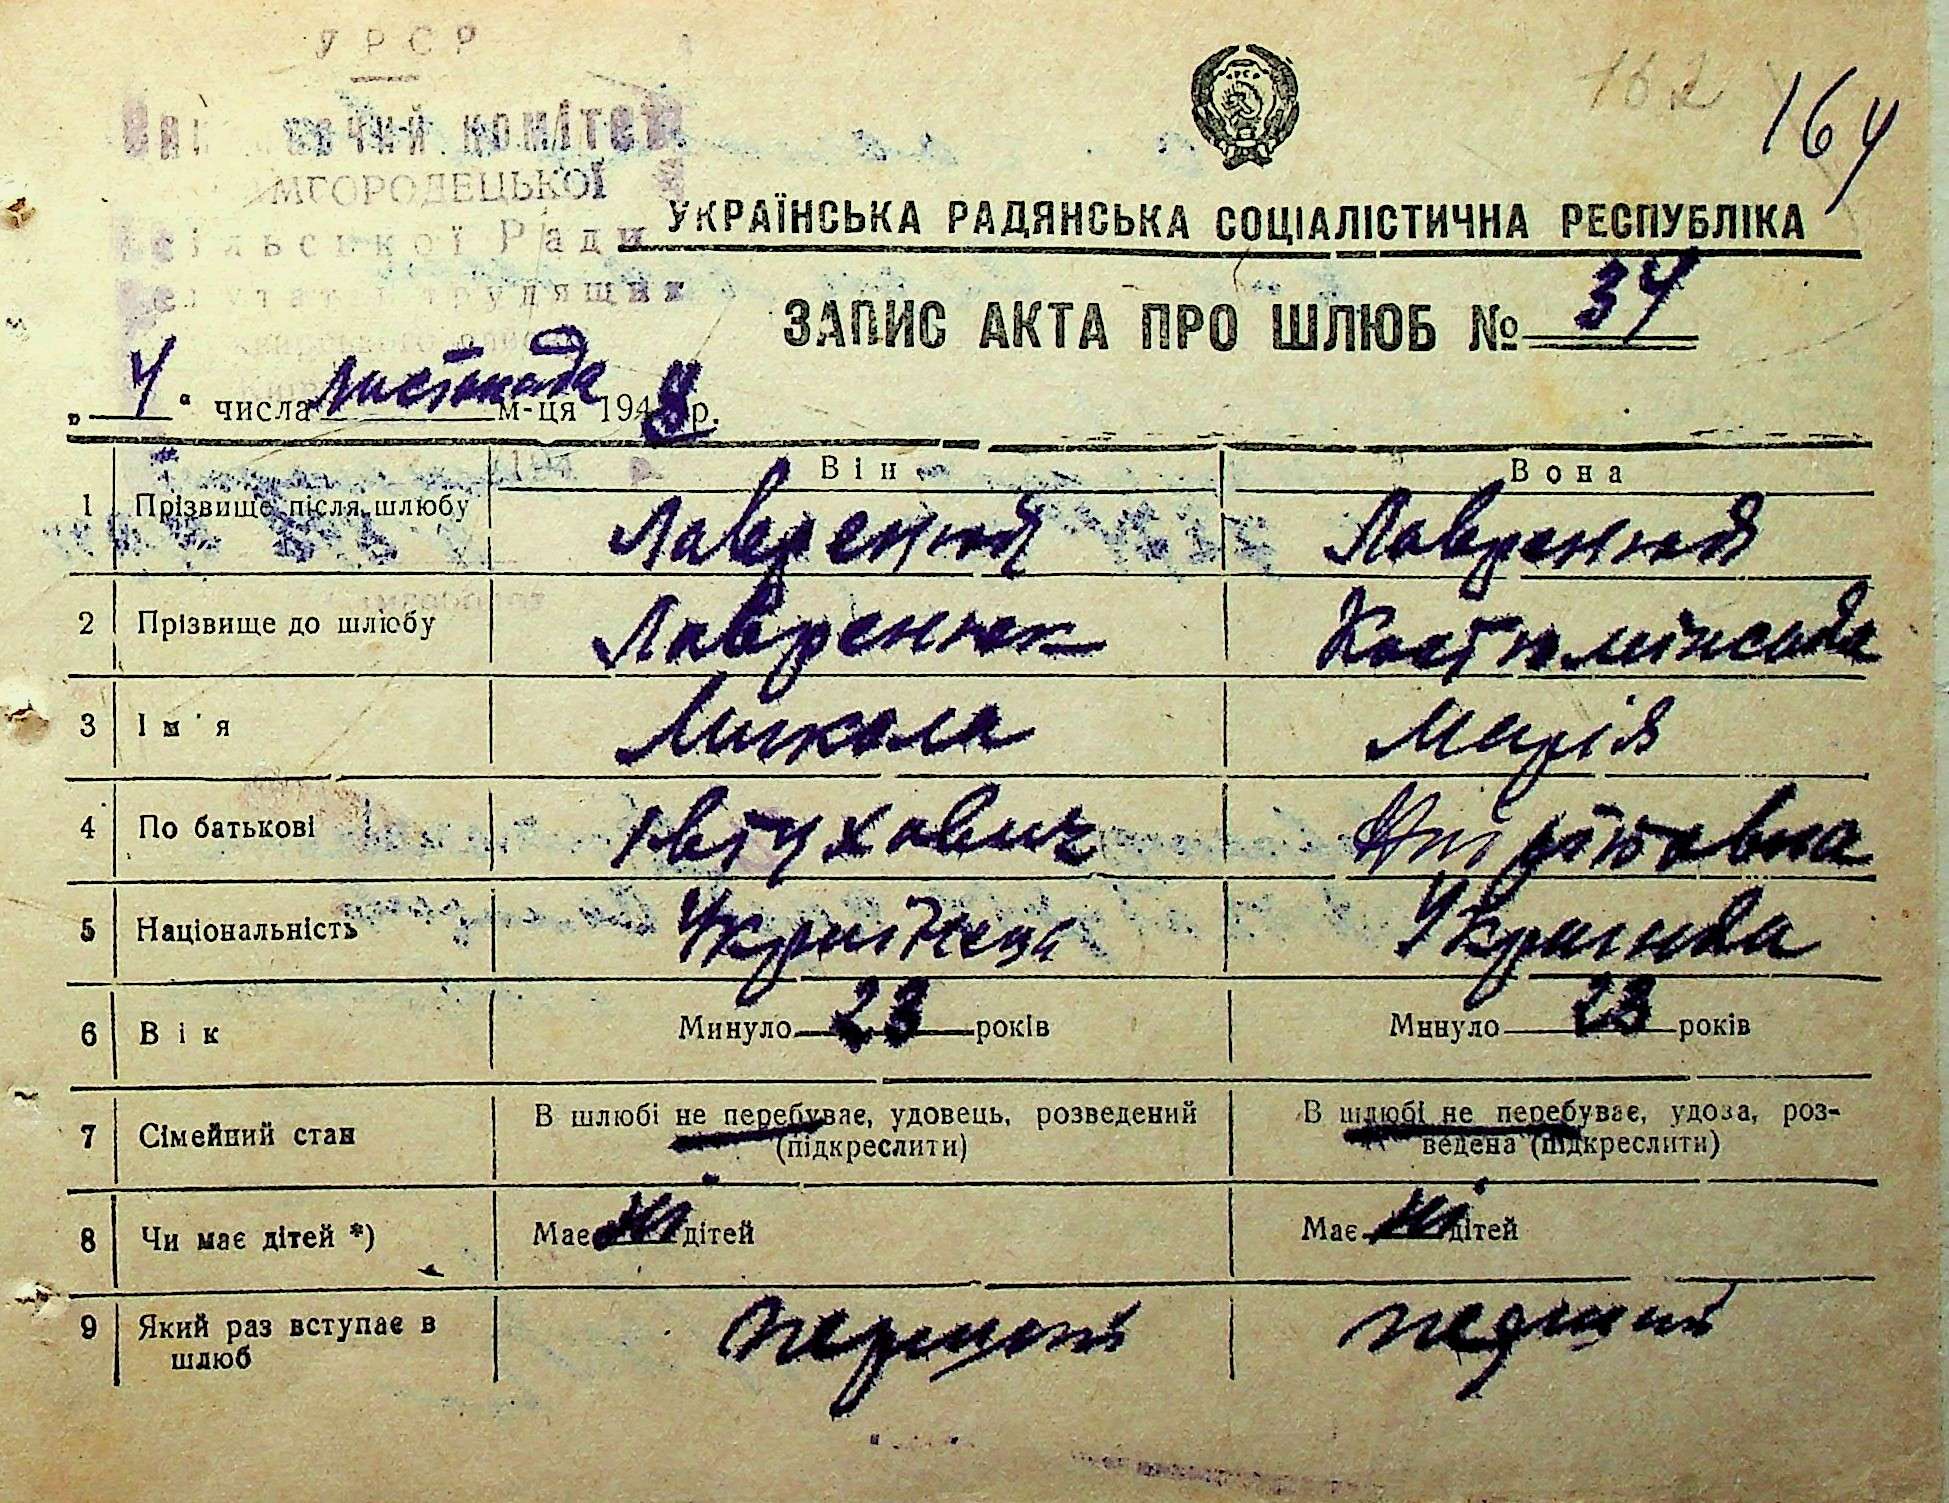 УРСР
комітет
МГОРОДЕЦЬКОЇ
сільської Ради
депутатів трудящих
162
164
УКРАЇНСЬКА РАДЯНСЬКА СОЦІАЛІСТИЧНА РЕСПУБЛІКА
ЗАПИС АКТА ПРО ШЛЮБ № 34
„4“ числа листопада м-ця 1948 р.
Він Вона
1 Прізвище після шлюбу Лавренюк Лавренюк
2 Прізвище до шлюбу Лавренюк Костюмінська
3 Ім'я Микола Марія
4 По батькові Євтухович
5 Національність Українець Українка
6 Вік Минуло 23 років Минуло 23 років
7 Сімейний стан В шлюбі не перебуває, удовець, розведений В шлюбі не перебуває, удова, роз-
(підкреслити) ведена (підкреслити)
8 Чи має дітей *) Має ні дітей Має ні дітей
9 Який раз вступає в перший перший
шлюб